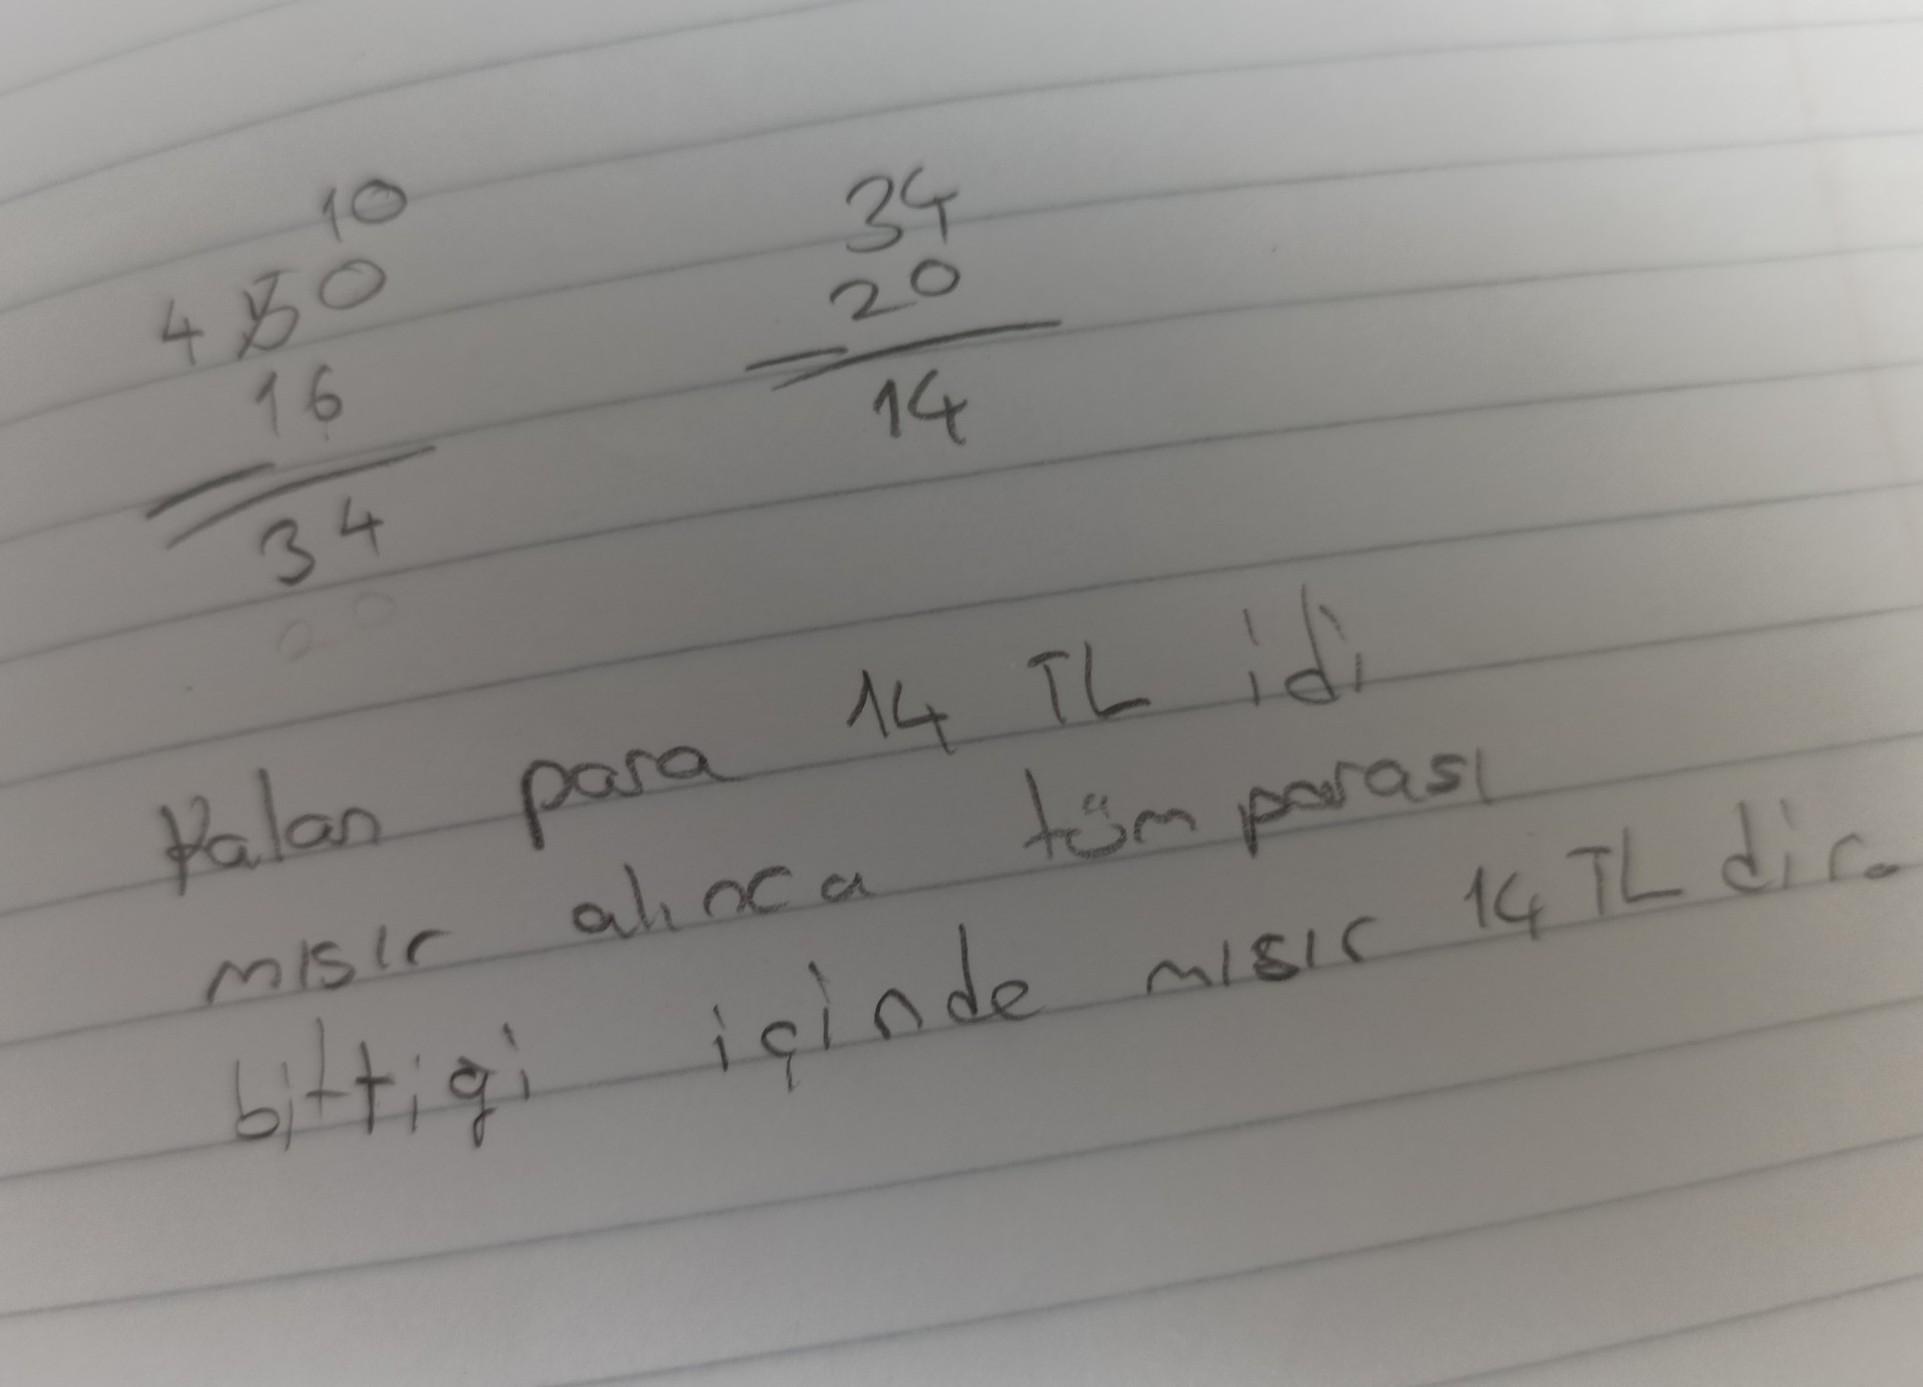 10
4 50
16
34
34
20
14
Kalan para 14 TL idi
mısır alınca tüm parası
bittigi içinde mısır 14 TL dir.